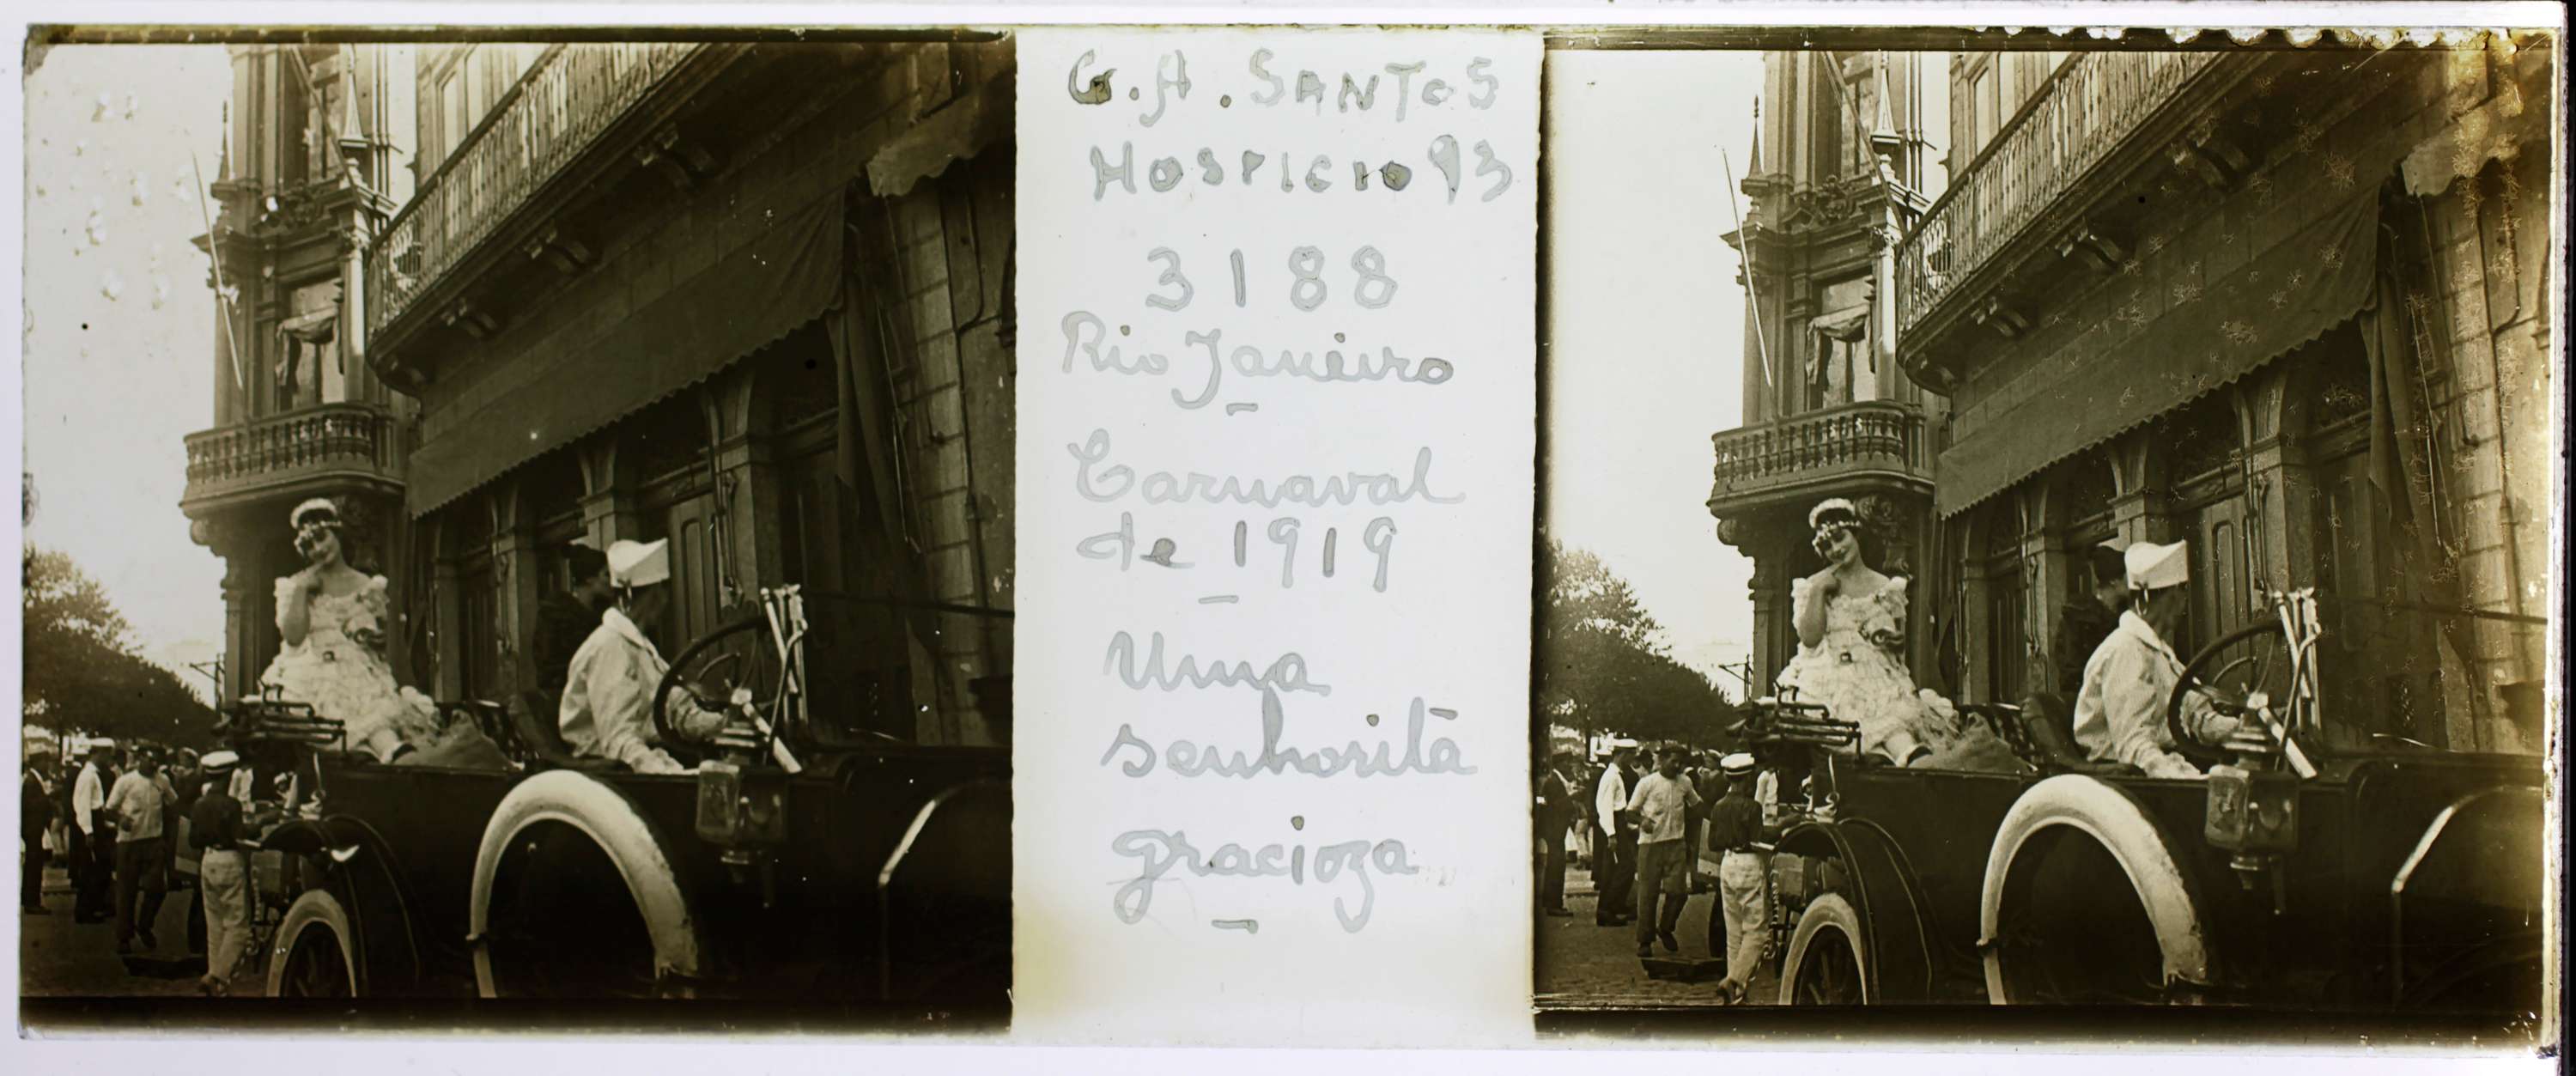 G. A. SANTOS
HOSPICIO 93
3188
Rio Janeiro
Carnaval
de 1919
Uma
senhorita
gracioza